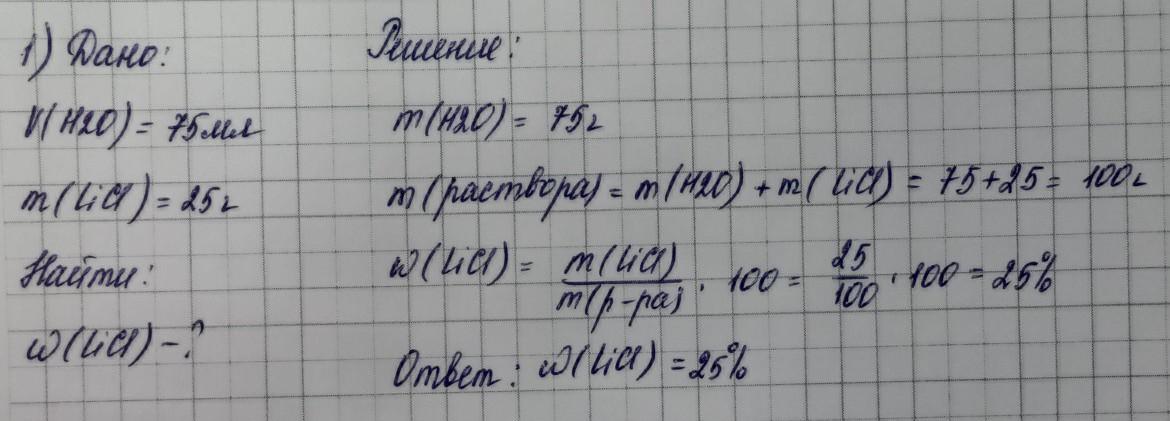 1) Дано:
V(H2O) = 75мл
m(LiCl) = 25г
Найти:
ω(LiCl) - ?
Решение:
m(H2O) = 75г
m(раствора) = m(H2O) + m(LiCl) = 75+25 = 100г
ω(LiCl) = m(LiCl)/m(р-ра) · 100 = 25/100 · 100 = 25%
Ответ: ω(LiCl) = 25%